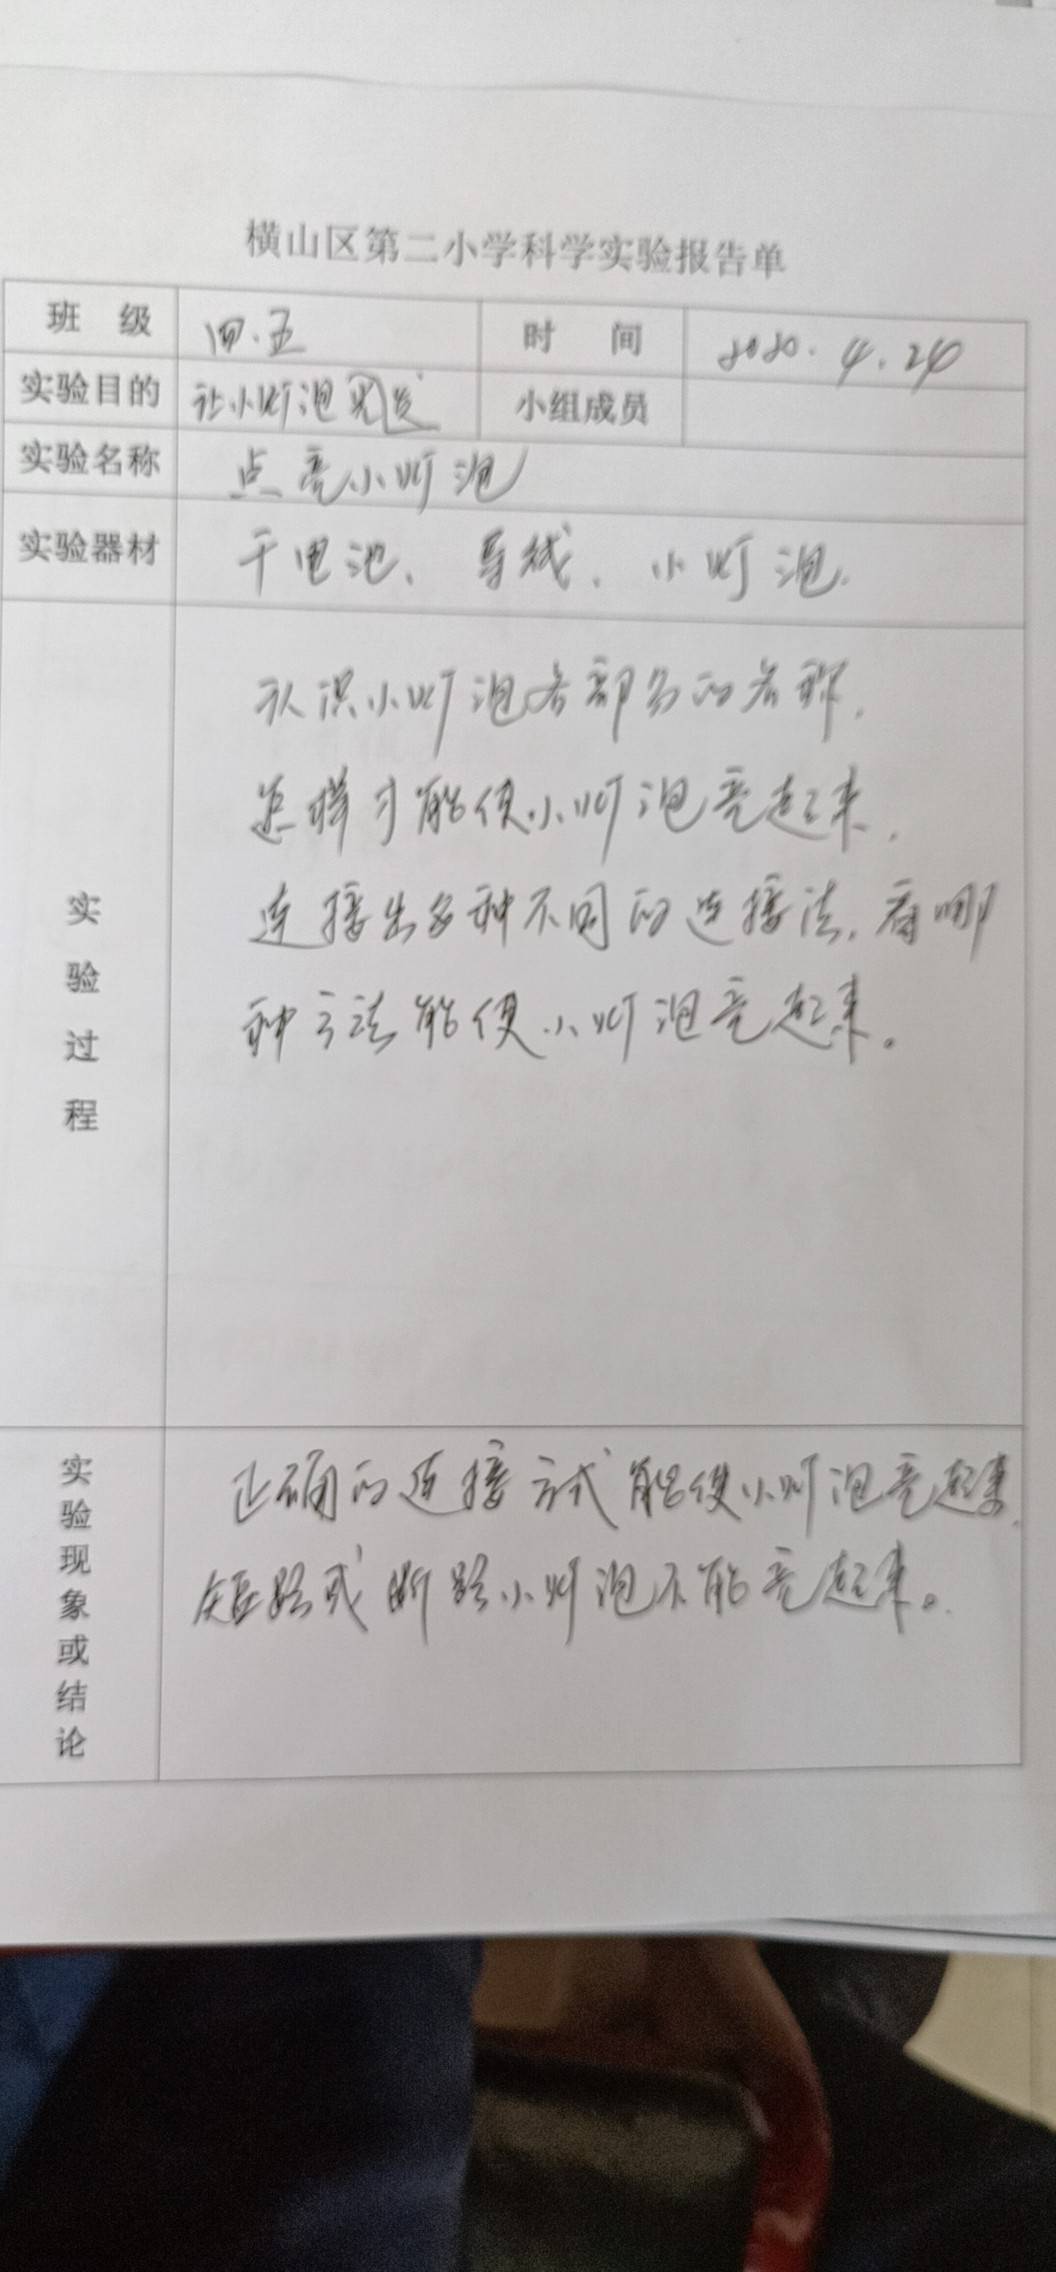 横山区第二小学科学实验报告单
班 级 四.五 时 间 2020.4.24
实验目的 让小灯泡光发 小组成员
实验名称 点亮小灯泡
实验器材 干电池、导线、小灯泡.
实验过程
认识小灯泡各部分的名称,
怎样才能使小灯泡亮起来.
连接出多种不同的连接法,看哪
种方法能使小灯泡亮起来。
实验现象或结论
正确的连接方式能使小灯泡亮起来,
短路或断路小灯泡不能亮起来。